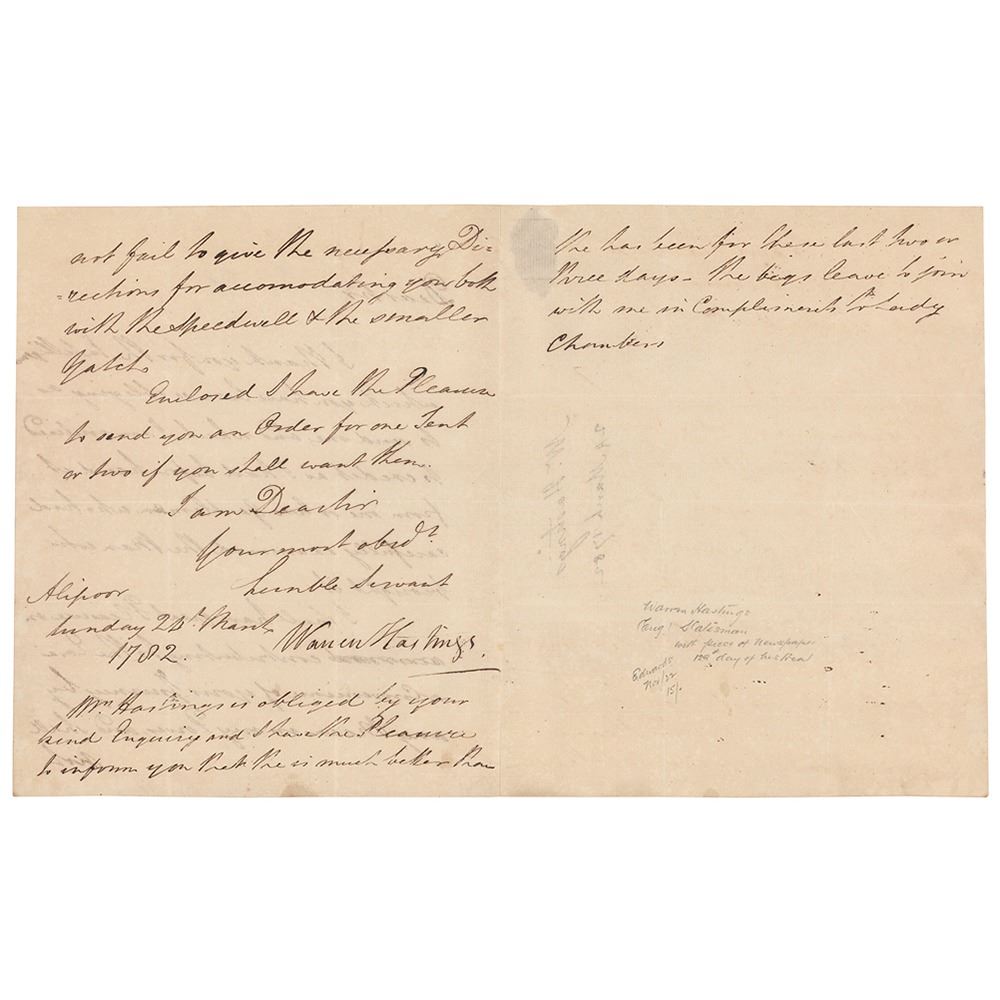 not fail to give the necessary Di=
=rections for accomodating your both
with the Speedwell & the smaller
Yatch
Enclosed I have the Pleasure
to send you an Order for one Tent
or two if you shall want them.
I am Dear Sir
Your most obed.t
humble Servant
Alipoor
Sunday 24th March
1782.
Warren Hastings
Mrs Hastings is obliged by your
kind Enquiry and I have the Pleasure
to inform you that she is much better than
she has been for these last two or
three days – she begs leave to join
with me in Compliments to Lady
Chambers
Warren Hastings
Eng! Statesman
with piece of Newspaper
day of his trial
Edwards
Nov/22
15/-